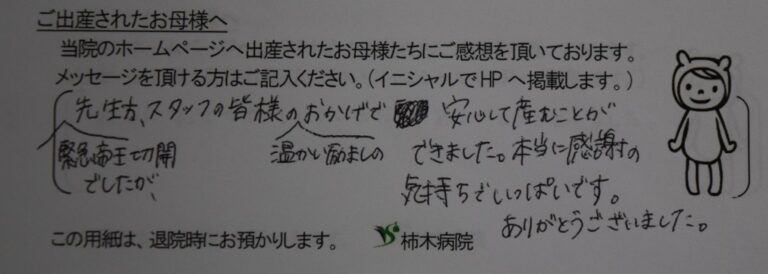 ご出産されたお母様へ
当院のホームページへ出産されたお母様たちにご感想を頂いております。
メッセージを頂ける方はご記入ください。(イニシャルでHPへ掲載します。)
先生方、スタッフの皆様のおかげで 安心して産むことが
緊急帝王切開 温かい励ましの できました。本当に感謝の
でしたが、 気持ちでいっぱいです。
ありがとうございました。
この用紙は、退院時にお預かりします。 柿木病院